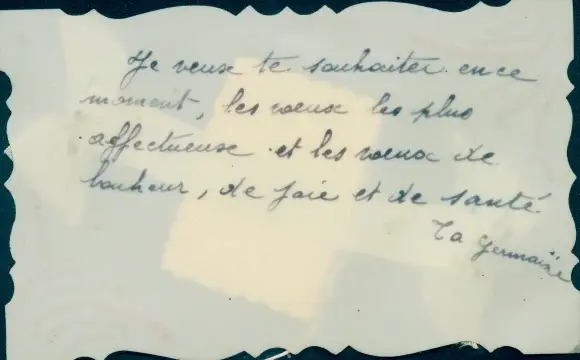 Je veux te souhaiter en ce
moment, les vœux les plus
affectueuse et les vœux de
bonheur, de joie et de santé
Ta Germaine